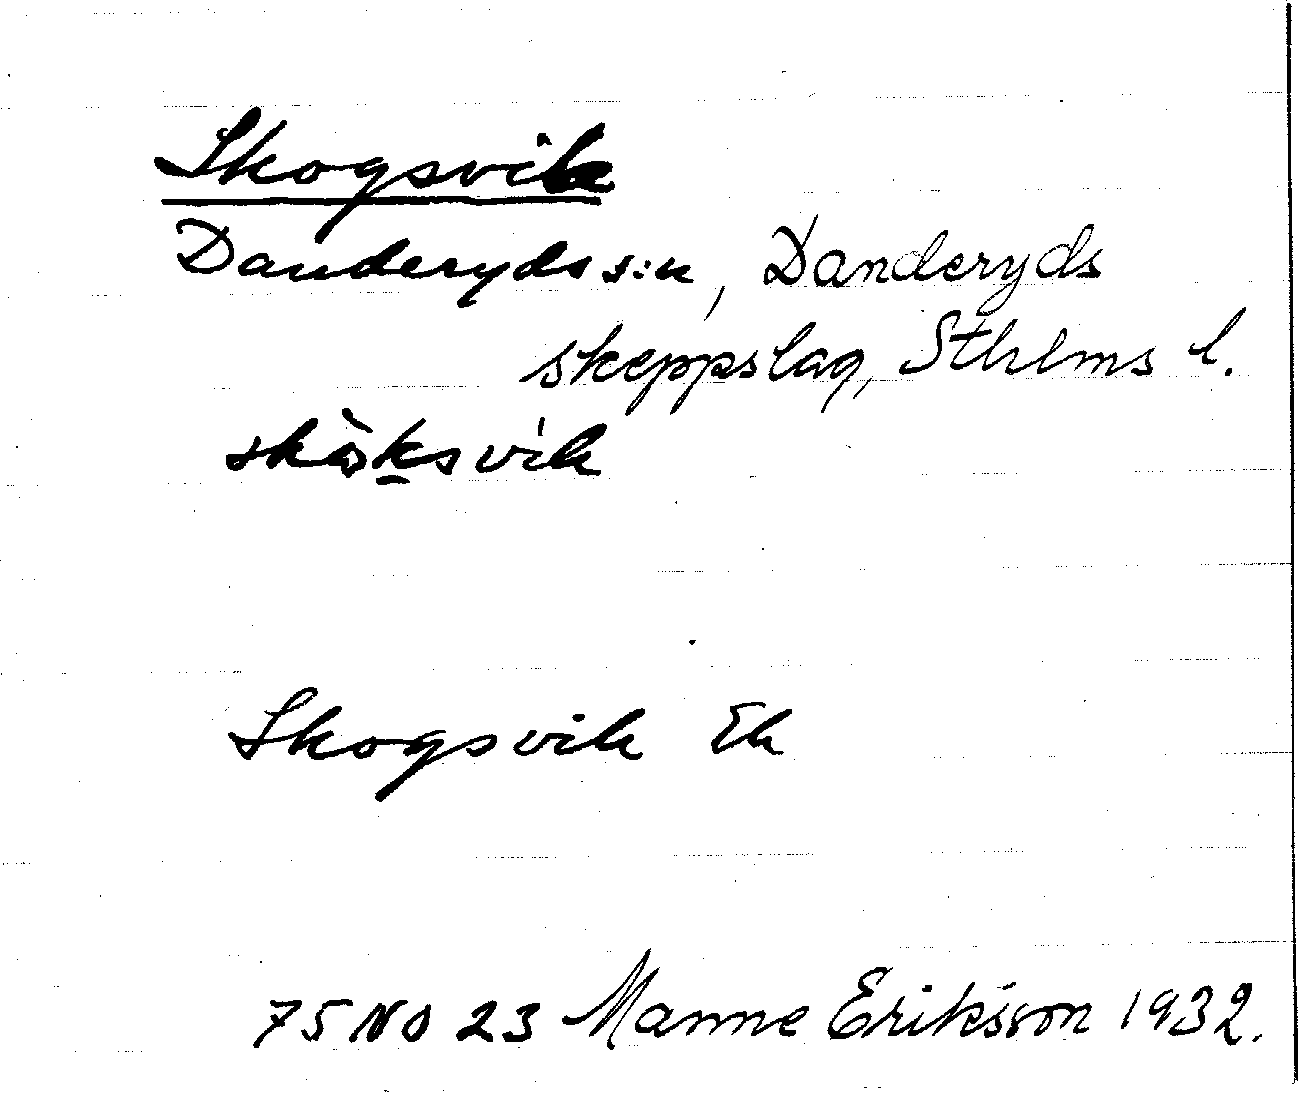 Skogsvik
Danderyds s:n, Danderyds
skeppslag, Sthlms l.
skòksvik
Skogsvik Ek
75 NO 23 Manne Eriksson 1932.